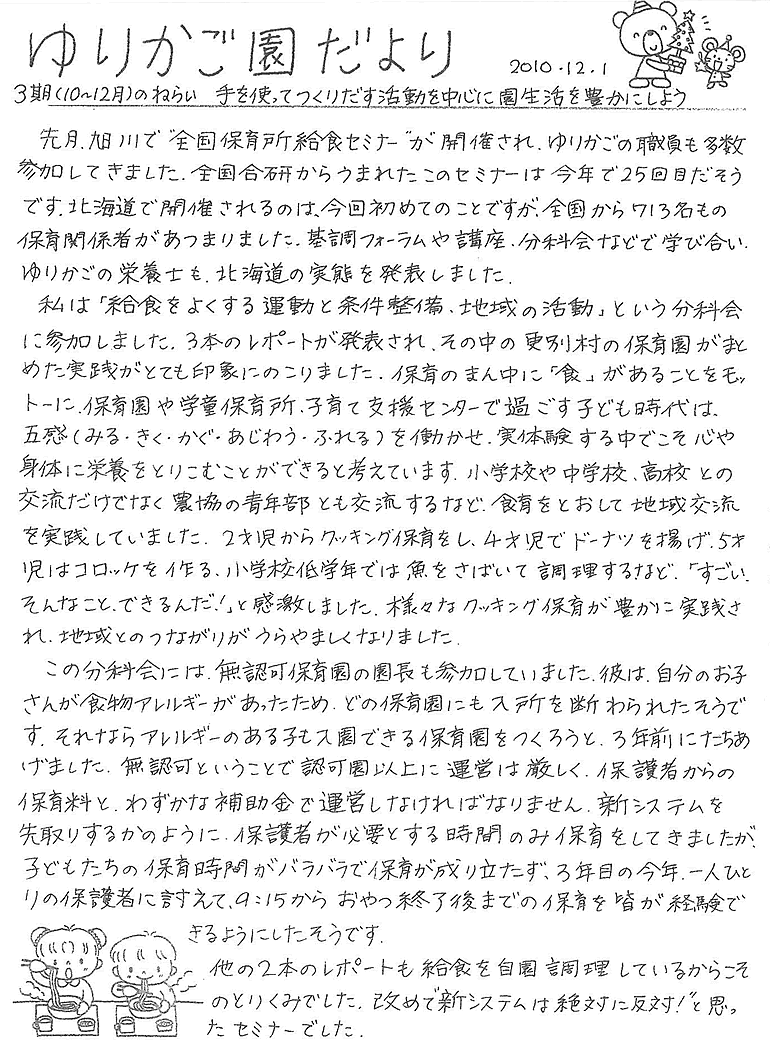 ゆりかご園だより
2010.12.1
3期(10~12月)のねらい 手を使ってつくりだす活動を中心に園生活を豊かにしよう
先月、旭川で“全国保育所給食セミナー”が開催され、ゆりかごの職員も多数
参加してきました。全国合研からうまれたこのセミナーは今年で25回目だそう
です。北海道で開催されるのは、今回初めてのことですが、全国から713名もの
保育関係者があつまりました。基調フォーラムや講座、分科会などで学び合い、
ゆりかごの栄養士も、北海道の実態を発表しました。
私は「給食をよくする運動と条件整備、地域の活動」という分科会
に参加しました。3本のレポートが発表され、その中の更別村の保育園がまと
めた実践がとても印象にのこりました。保育のまん中に「食」があることをモッ
トーに、保育園や学童保育所、子育て支援センターで過ごす子ども時代は、
五感(みる・きく・かぐ・あじわう・ふれる)を働かせ、実体験する中でこそ心や
身体に栄養をとりこむことができると考えています。小学校や中学校、高校との
交流だけでなく農協の青年部とも交流するなど、食育をとおして地域交流
を実践していました。2才児からクッキング保育をし、4才児でドーナツを揚げ、5才
児はコロッケを作る、小学校低学年では魚をさばいて調理するなど、「すごい、
そんなこと、できるんだ!」と感激しました。様々なクッキング保育が豊かに実践さ
れ、地域とのつながりがうらやましくなりました。
この分科会には、無認可保育園の園長も参加していました。彼は、自分のお子
さんが食物アレルギーがあったため、どの保育園にも入所を断わられたそうで
す。それならアレルギーのある子も入園できる保育園をつくろうと、3年前にたちあ
げました。無認可ということで認可園以上に運営は厳しく、保護者からの
保育料と、わずかな補助金で運営しなければなりません。新システムを
先取りするかのように、保護者が必要とする時間のみ保育をしてきましたが、
子どもたちの保育時間がバラバラで保育が成り立たず、3年目の今年、一人ひと
りの保護者に訴えて、9:15からおやつ終了後までの保育を皆が経験で
きるようにしたそうです。
他の2本のレポートも給食を自園調理しているからこそ
のとりくみでした。改めて“新システムは絶対に反対!”と思っ
たセミナーでした。